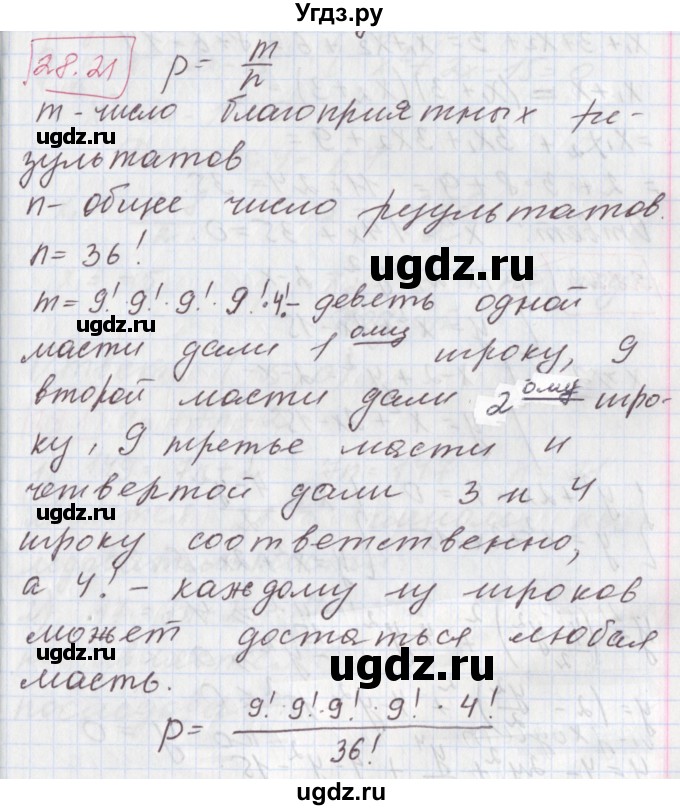 Угдз.ру
28.21 p = m/n
m - число благоприятных ре-
зультатов
n - общее число результатов.
n = 36!
ugdz.ru
ugdz.ru
m = 9! 9! · 9! · 9! · 4! - девять одной
масти дали 1 ому игроку, 9
второй масти дали 2 ому игро-
ку, 9 третье масти и
четвертой дали 3 и 4
ugdz.ru
ugdz.ru
игроку соответственно,
а 4! - каждому из игроков
может достаться любая
ugdz.ru
ugdz.ru
масть.
p = 9! · 9! · 9! · 9! · 4! / 36!
Угдз.ру